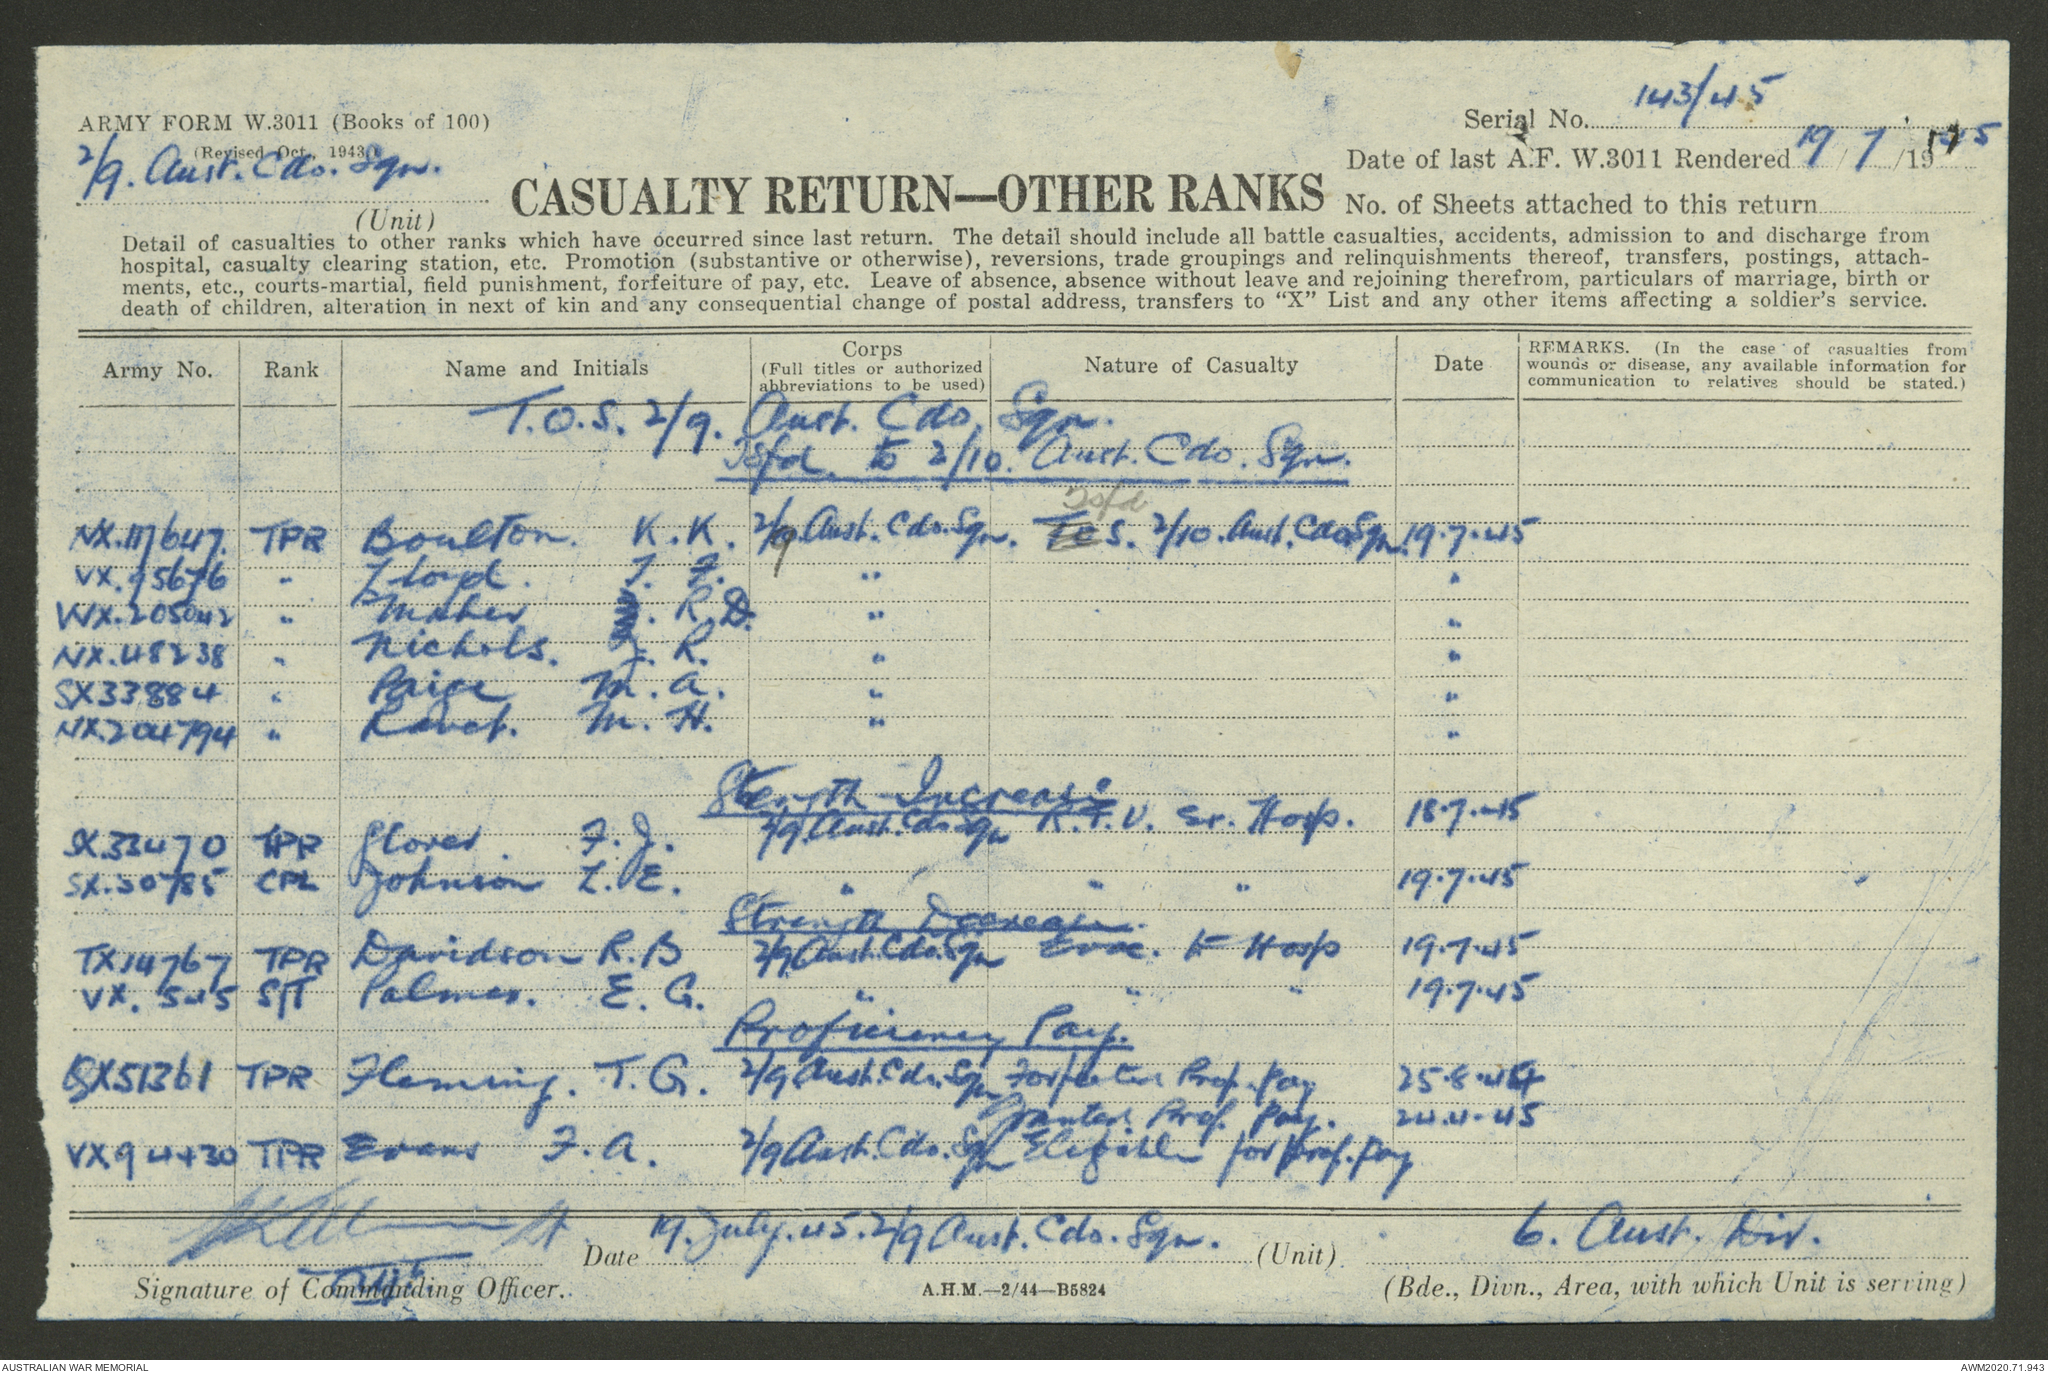 ARMY FORM W.3011 (Books of 100)
(Revised Oct. 1943)
2/9. Aust. Cdo. Sqn.
(Unit)
CASUALTY RETURN—OTHER RANKS
Serial No. 143/45
Date of last A.F. W.3011 Rendered 19/7/1945
No. of Sheets attached to this return
Detail of casualties to other ranks which have occurred since last return. The detail should include all battle casualties, accidents, admission to and discharge from
hospital, casualty clearing station, etc. Promotion (substantive or otherwise), reversions, trade groupings and relinquishments thereof, transfers, postings, attach-
ments, etc., courts-martial, field punishment, forfeiture of pay, etc. Leave of absence, absence without leave and rejoining therefrom, particulars of marriage, birth or
death of children, alteration in next of kin and any consequential change of postal address, transfers to “X” List and any other items affecting a soldier’s service.
Army No. Rank Name and Initials Corps (Full titles or authorized abbreviations to be used) Nature of Casualty Date REMARKS. (In the case of casualties from wounds or disease, any available information for communication to relatives should be stated.)
T.O.S. 2/9. Aust. Cdo. Sqn.
Tsfd. to 2/10. Aust. Cdo. Sqn.
Tsfd
NX.117647. TPR Boulton. K.K. 2/9 Aust. Cdo. Sqn. 2/10. Aust. Cdo Sqn. 19.7.45
VX.95676 " Lloyd. " "
205042 " Maher R.D. " "
NX.48238 " Nichols. R. " "
SX33884 " Paige M.A. " "
NX.204794 " M.H. " "
Strength Increase
SX.33470 TPR Glover F.J. 2/9 Aust. Cdo. Sqn R.T.U. Ex. Hosp. 18.7.45
SX.30785 CPL Johnson L.E. " " " 19.7.45
Strength Decrease.
TX14767 TPR Davidson R.B 2/9 Aust. Cdo. Sqn Evac. to Hosp 19.7.45
VX. 545 SJT Palmer. E.G. " " " 19.7.45
Proficiency Pay.
QX51361 TPR Fleming. T.G. 2/9 Aust. Cdo. Sqn Forfeiture Prof. Pay 25.8.44
Granted Prof. Pay. 24.4.45
VX94430 TPR Evans F.A. 2/9 Aust. Cdo. Sqn Eligible for Prof. Pay
Date 19. July. 45. 2/9 Aust. Cdo. Sqn. (Unit) 6. Aust. Div.
Signature of Commanding Officer.
A.H.M.—2/44—B5824
(Bde., Divn., Area, with which Unit is serving)
AUSTRALIAN WAR MEMORIAL
AWM2020.71.943